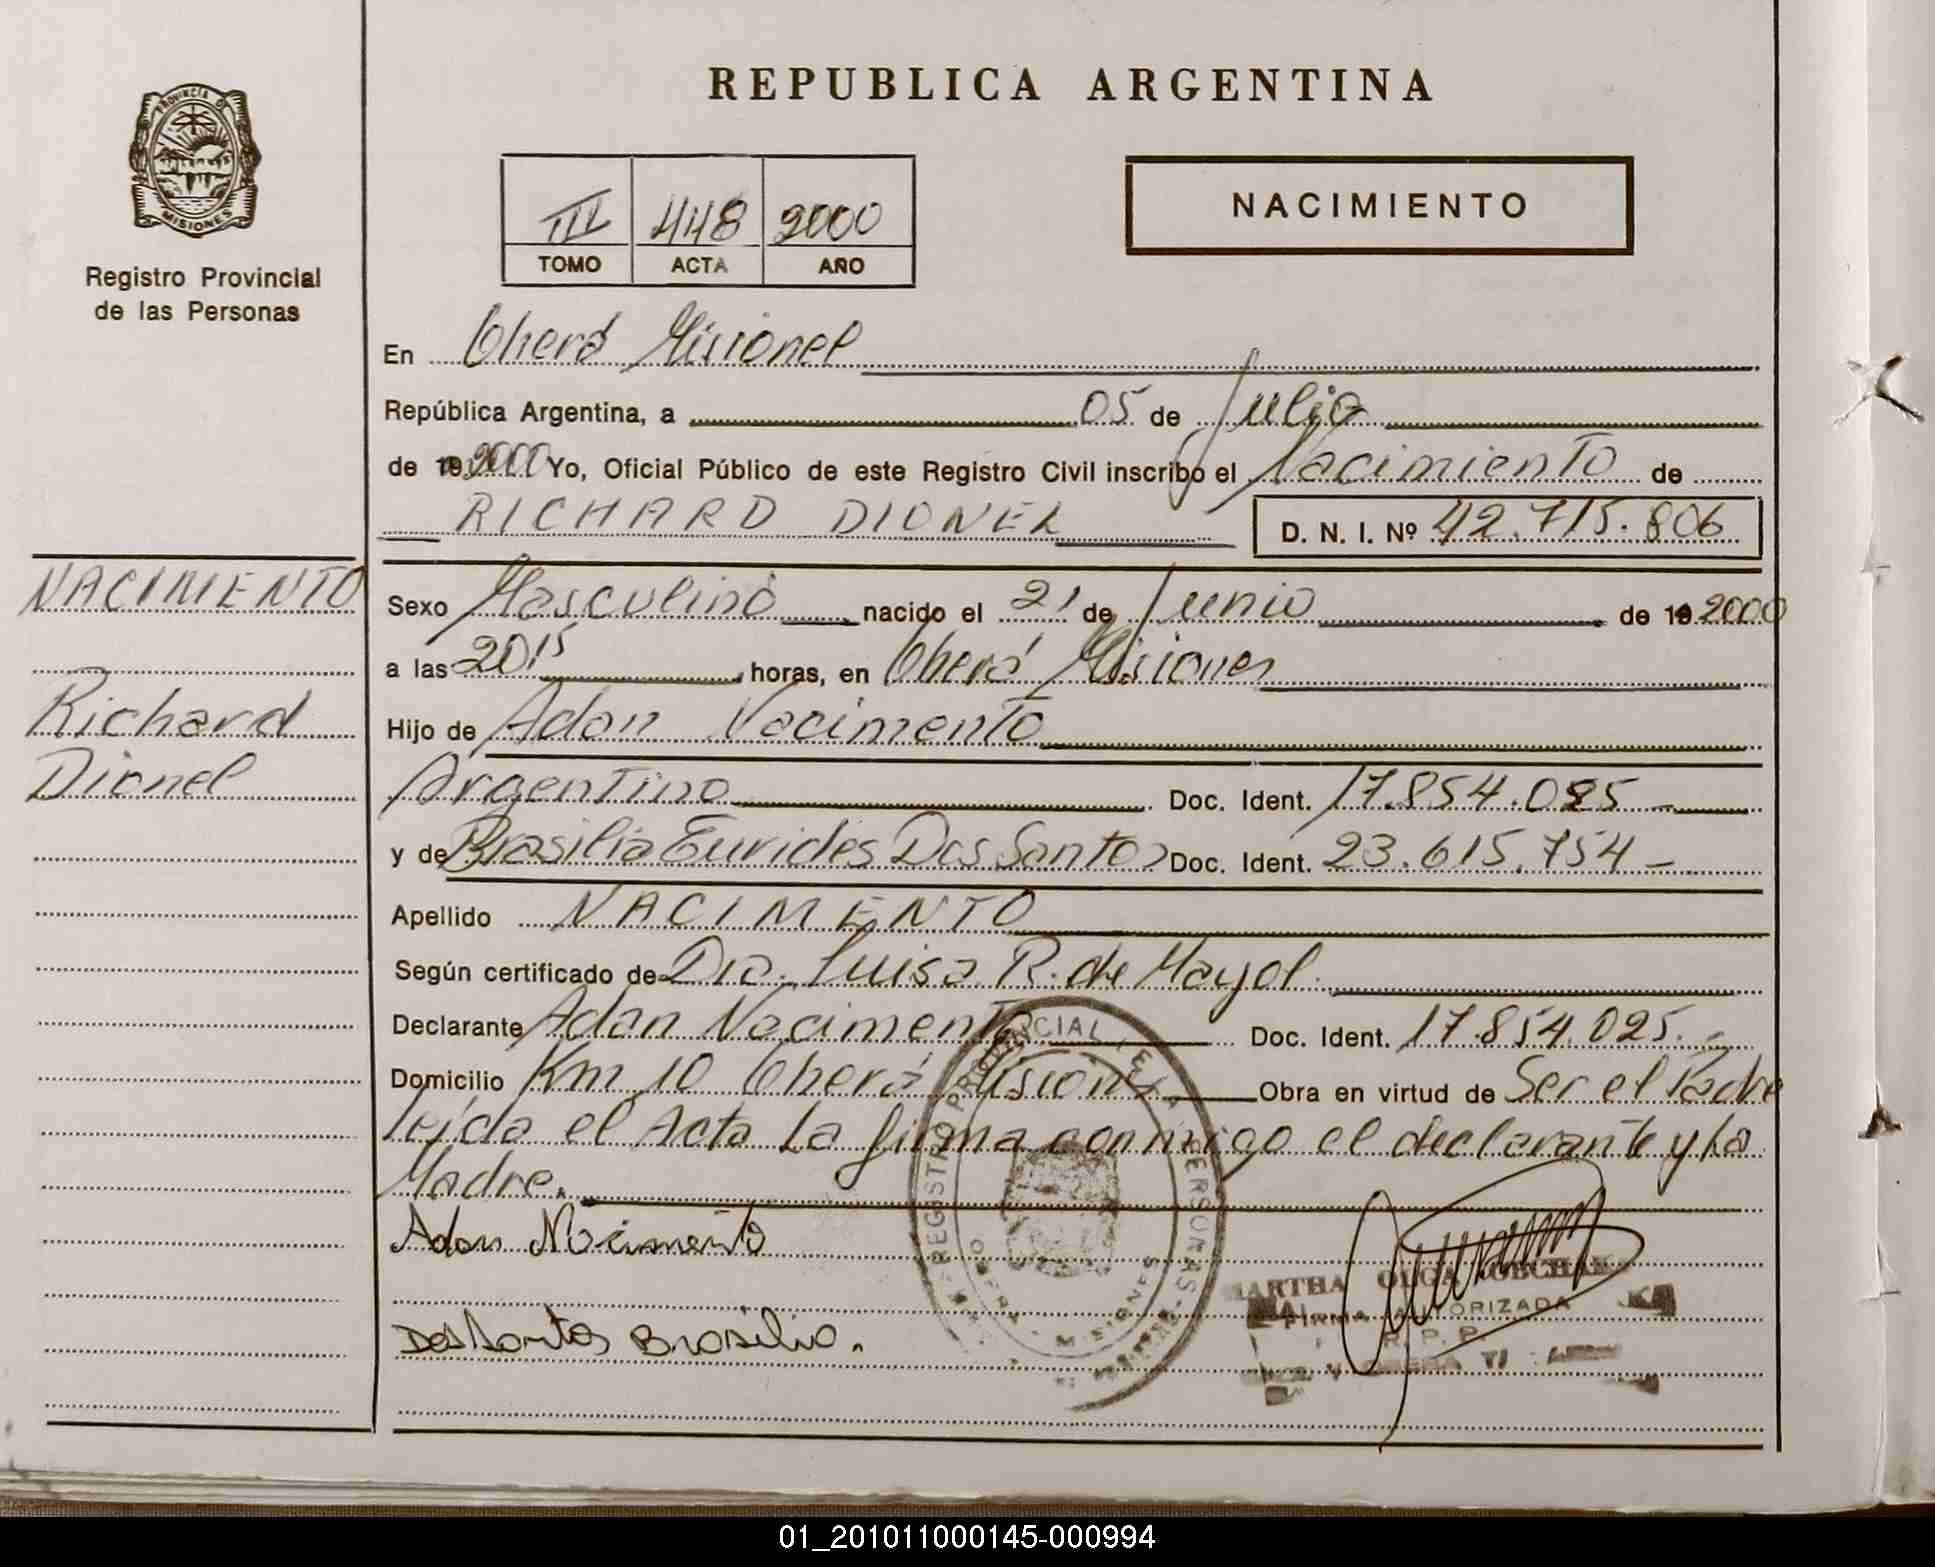 REPUBLICA ARGENTINA
PROVINCIA DE
MISIONES
Registro Provincial
de las Personas
III 448 2000
TOMO ACTA AÑO
NACIMIENTO
En Oberá Misiones
República Argentina, a 05 de Julio
de 19 2000 Yo, Oficial Público de este Registro Civil inscribo el Nacimiento de
RICHARD DIONEL D. N. I. Nº 42.715.806
NACIMENTO
Richard
Dionel
Sexo Masculino nacido el 21 de Junio de 19 2000
a las 20,15 horas, en Oberá Misiones
Hijo de Adan Nacimento
Argentino Doc. Ident. 17.854.025
y de Brasilia Eurides Dos Santos Doc. Ident. 23.615.754
Apellido NACIMENTO
Según certificado de Dra. Luisa R. de Mayol
Declarante Adan Nacimento Doc. Ident. 17.854.025.
Domicilio Km 10 Oberá Misiones Obra en virtud de Ser el Padre
leída el Acta La firma conmigo el declarante y La
Madre.
Adan Nacimento
Dos Santos Brasilia.
REGISTRO PROVINCIAL DE LAS PERSONAS
OBERA - MISIONES
MARTHA OLGA
FIRMA AUTORIZADA
R. P. P.
01_201011000145-000994